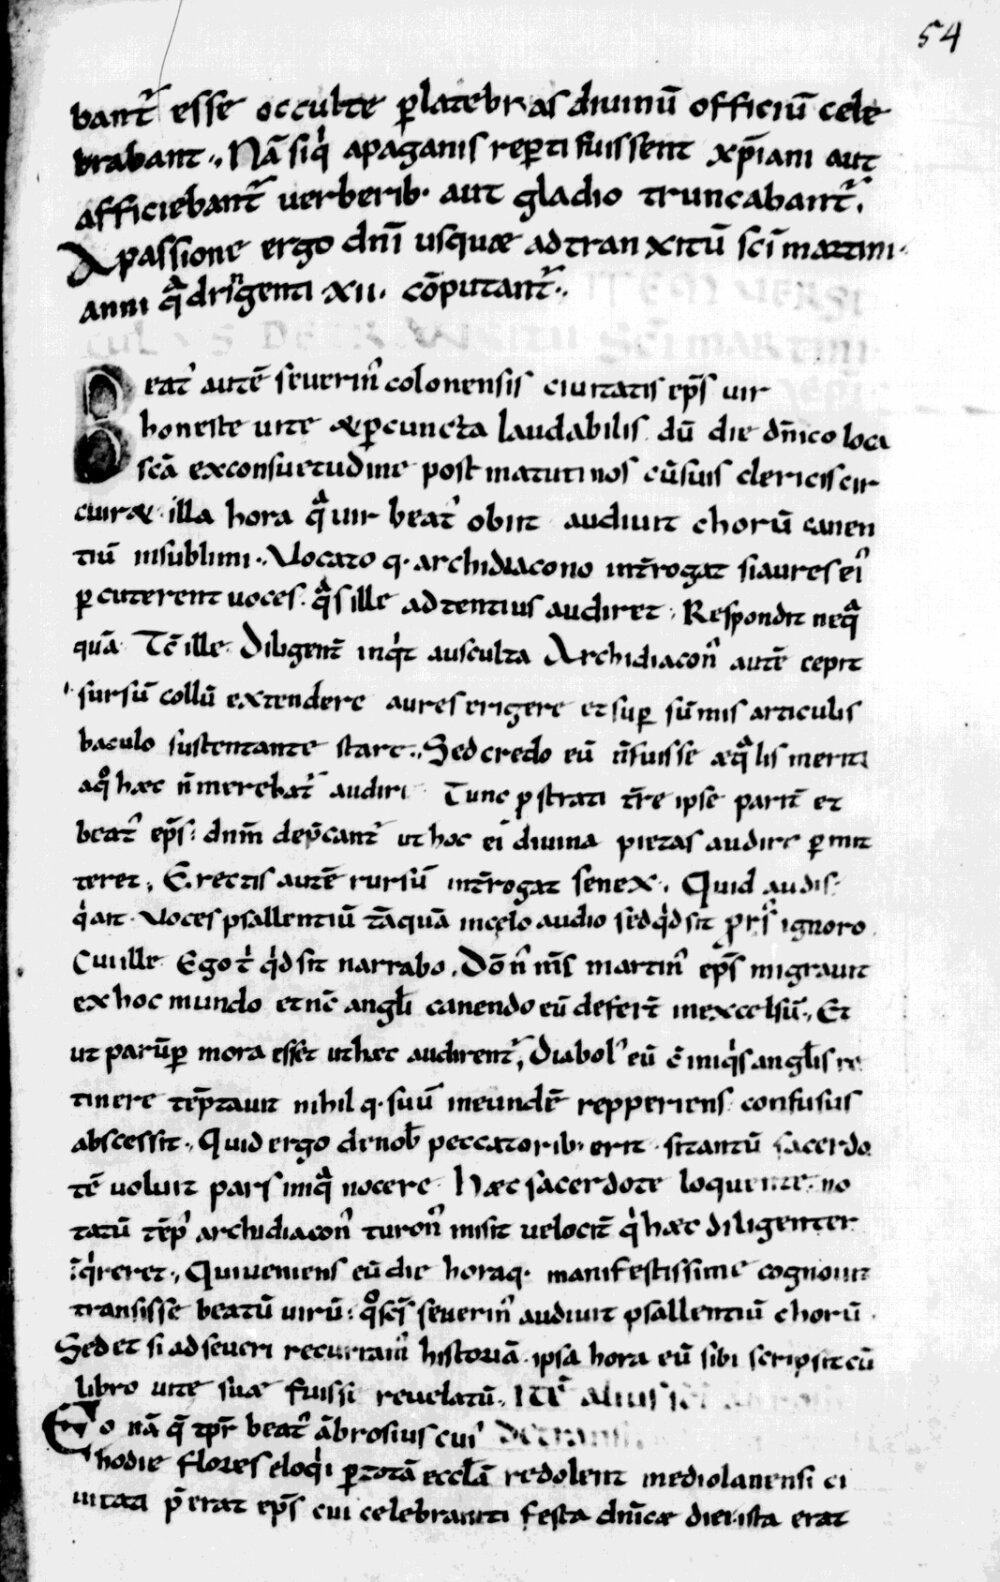 54
bant᷑ esse occulte ꝑlatebras diuinū officiū cele
brabant·, Nā siq̇ apaganis reꝑti fuissent xp̄iani aut
afficiebant᷑ uerberib· aut gladio truncabant᷑.
A passione ergo dn̄i usquæ adtranxitū sc̄i martini·
anni qᷓdringenti ·xii· cōputant᷑·,
ITEM VERSI
SC̄I MARTINI·
Beatꝰ autē seuerinꝰ colonensis ciuitatis ep̄s uir
honeste uite &ꝑcuncta laudabilis dū die dn̄ico loca
scā exconsuetudine post matutinos cū suis clericis cir
cuir& · illa hora qᷓ uir beatꝰ obiit audiuit chorū canen
tiū insublimi·, Vocato q· archidiacono int̄rogat siaures eiꝰ
ꝑcuterent uoces · qᷓs ille adtentius audiret · Respondit neqᷓ
quā Tc̄ ille · Diligent̄ inq̇t ausculta Archidiaconꝰ autē cepit
sursū collū extendere aures erigere et suꝑ sūmis articulis
baculo sustentante stare·, Sed credo eū n̄fuisse æqᷓlis meriti
aqͦ hæc n̄ merebat᷑ audiri Tunc ꝓstrati t̄re ipse parit̄ et
beatꝰ ep̄s: dnm̄ dep̄cant᷑ ut hoc ei diuina pietas audire ꝑmit
teret·, Erectis autē rursū int̄rogat senex·, Quid audis·
q̇ ait · Voces psallentiū tāquā incęlo audio sed q̇d sit ꝓrsꝰ ignoro
Cui ille Ego ṫ q̇d sit narrabo. Dōnꝰ m̄s martinꝰ ep̄s migrauit
ex hoc mundo et nc̄ angłi canendo eū defert̄ inexcelsū·, Et
ut parūꝑ mora esset uthæc audirent᷑, Diabolꝰ eū c̄ iniq̇s angłis re
tinere tēptauit nihil q· suū ineundē repperiens · confusus
abscessit·, Quid ergo denob̄ peccatorib; erit · sitantū sacerdo
tē uoluit pars iniqᷓ nocere Hæc sacerdote loquente · no
tatū tēpꝰ archidiaconꝰ turonꝰ misit uelocit̄ q̇ hæc diligenter
īq̇reret·, Quiueniens eū die horaq· manifestissime cognouit
transisse beatū uirū · qͦ sc̄s seuerinꝰ audiuit psallentiū chorū ·
Sed et si adseueri recurramꝰ historiā · ipsa hora eū sibi scripsit cū
libro uite suæ fuissi reuelatū·, ITĒ ALIUS
Eo nā qᷓ tp̄r beatꝰ ābrosius cuiꝰ
hodie flores eloq̇i ꝑtotā eccłā redolent mediolanensi ci
uitati p̄erat ep̄s cui celebranti festa dn̄icæ diei · ista erat